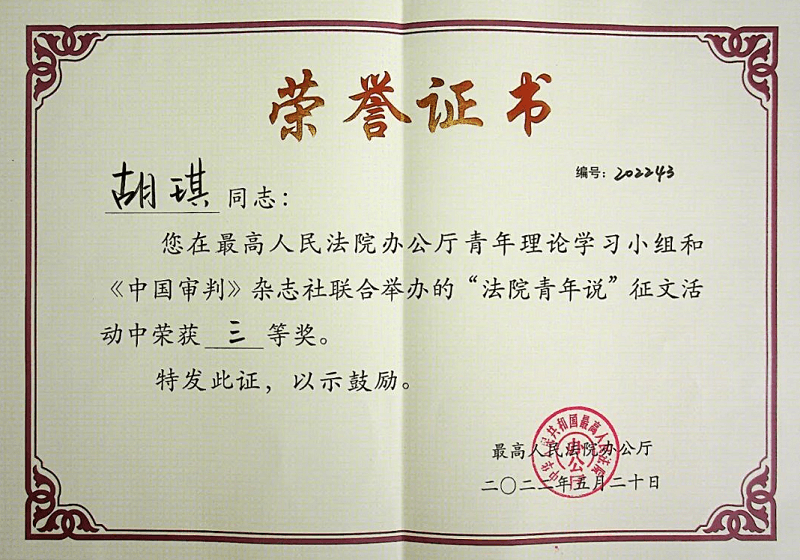 荣誉证书
编号：202243
胡琪同志：
您在最高人民法院办公厅青年理论学习小组和
《中国审判》杂志社联合举办的“法院青年说”征文活
动中荣获三等奖。
特发此证，以示鼓励。
最高人民法院办公厅
二〇二二年五月二十日
中华人民共和国最高人民法院
办公厅